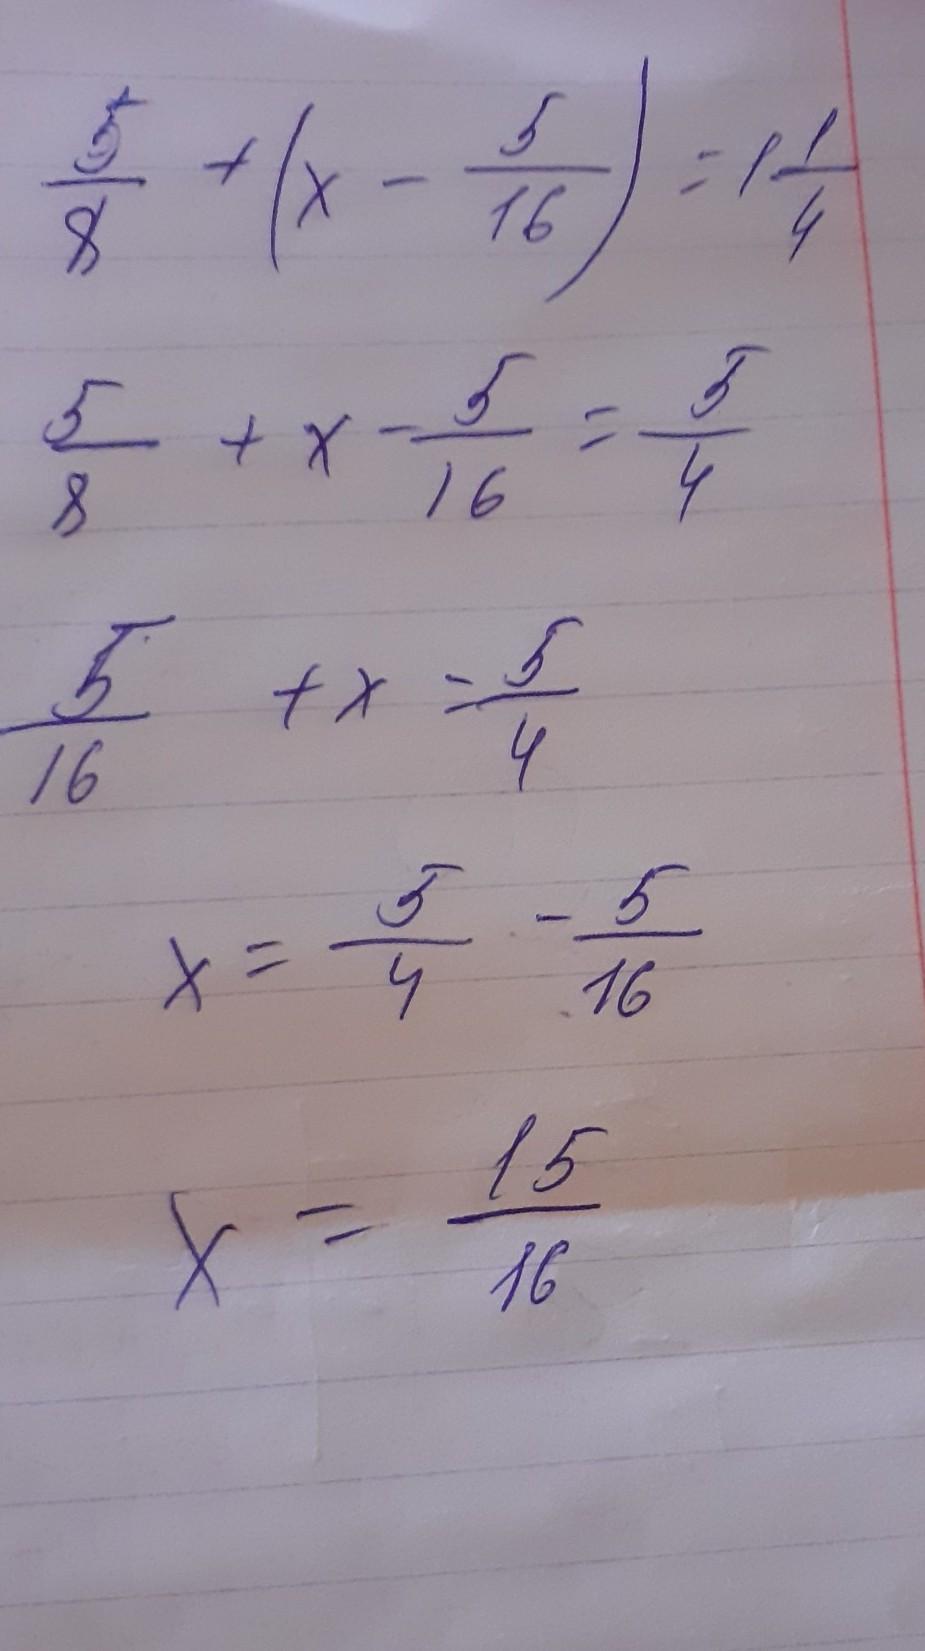 5/8 + (x - 5/16) = 1 1/4
5/8 + x - 5/16 = 5/4
5/16 + x = 5/4
x = 5/4 - 5/16
x = 15/16